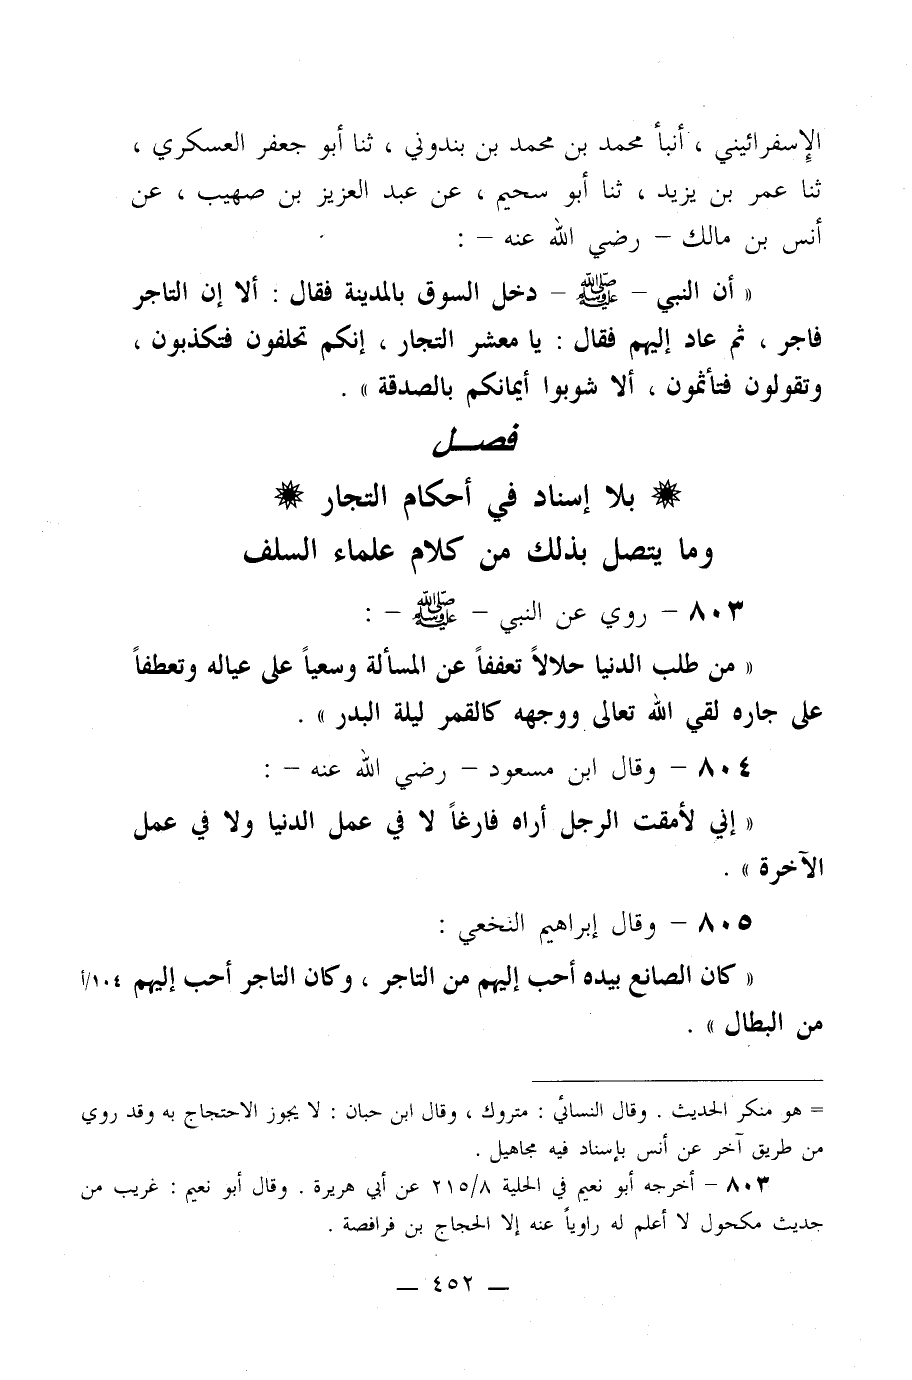 الإسفرائيني ، أنبأ محمد بن محمد بن بندوني ، ثنا أبو جعفر العسكري ،
ثنا عمر بن يزيد ، ثنا أبو سحيم ، عن عبد العزيز بن صهيب ، عن
أنس بن مالك – رضي الله عنه – :
« أن النبي – ﷺ – دخل السوق بالمدينة فقال : ألا إن التاجر
فاجر ، ثم عاد إليهم فقال : يا معشر التجار ، إنكم تحلفون فتكذبون ،
وتقولون فتأثمون ، ألا شوبوا أيمانكم بالصدقة » .
فصل
بلا إسناد في أحكام التجار
وما يتصل بذلك من كلام علماء السلف
٨٠٣ – روي عن النبي – ﷺ – :
« من طلب الدنيا حلالاً تعففاً عن المسألة وسعياً على عياله وتعطفاً
على جاره لقي الله تعالى ووجهه كالقمر ليلة البدر » .
٨٠٤ – وقال ابن مسعود – رضي الله عنه – :
« إني لأمقت الرجل أراه فارغاً لا في عمل الدنيا ولا في عمل
الآخرة » .
٨٠٥ – وقال إبراهيم النخعي :
« كان الصانع بيده أحب إليهم من التاجر ، وكان التاجر أحب إليهم ١٠٤/أ
من البطال » .
= هو منكر الحديث . وقال النسائي : متروك ، وقال ابن حبان : لا يجوز الاحتجاج به وقد روي
من طريق آخر عن أنس بإسناد فيه مجاهيل .
٨٠٣ – أخرجه أبو نعيم في الحلية ٢١٥/٨ عن أبي هريرة . وقال أبو نعيم : غريب من
حديث مكحول لا أعلم له راوياً عنه إلا الحجاج بن فرافصة .
— ٤٥٢ —